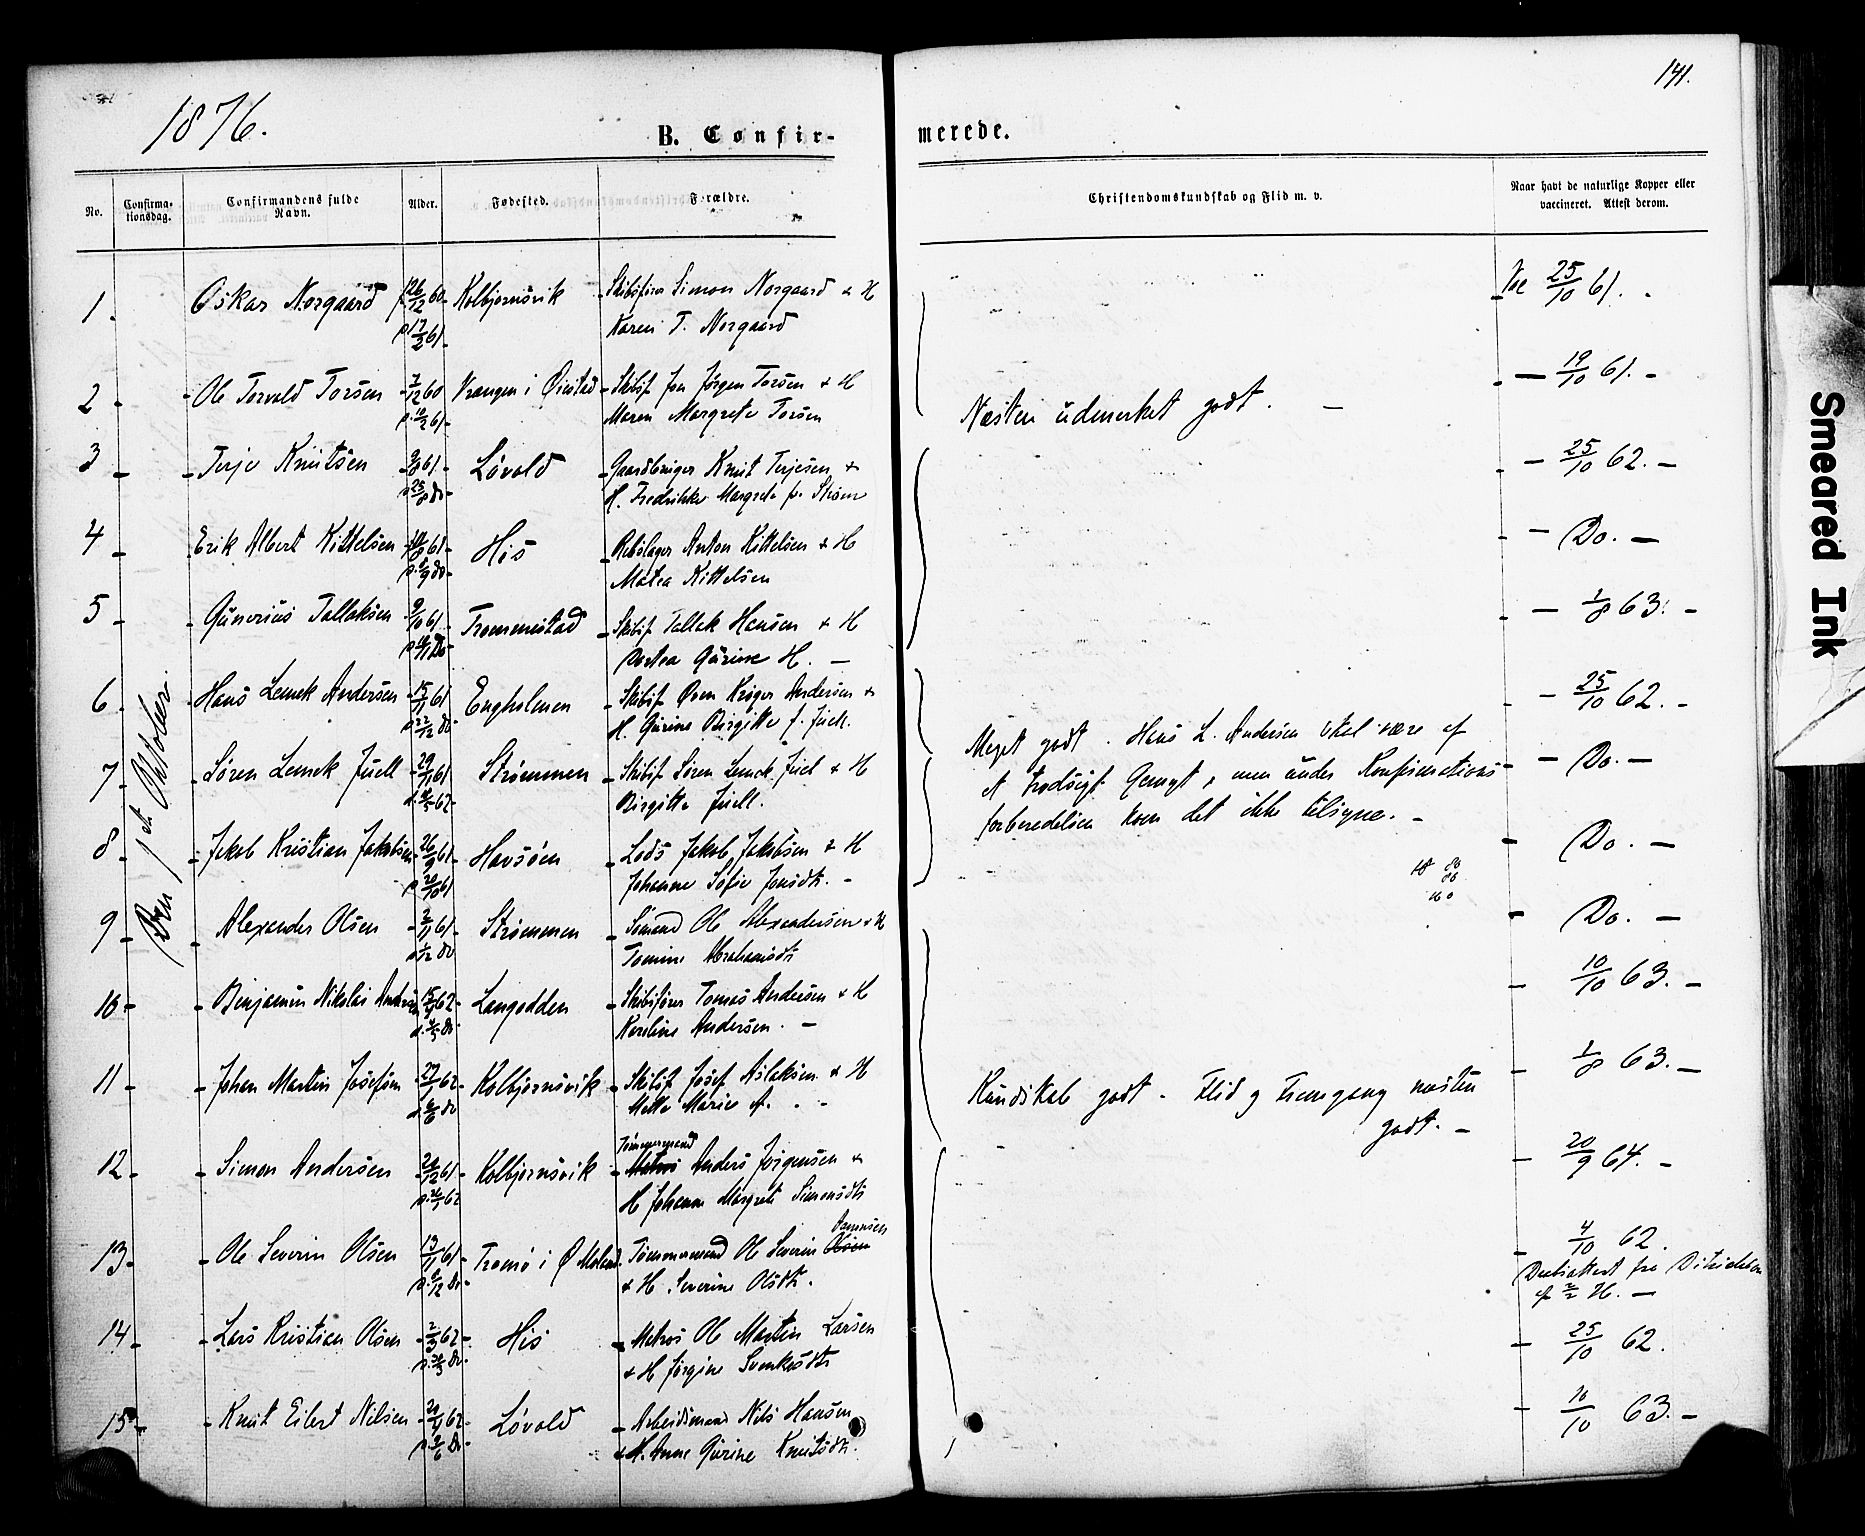 141.
1876.
B. Confir-
merede.
No.
Confirma-
tionsdag.
Confirmandens fulde
Navn.
Alder.
Fødested.
Forældre.
Christendomskundskab og Flid m. v.
Naar havt de naturlige Kopper eller
vaccineret. Attest derom.
Den 1ste Oktober.
1. Oskar Norgaard 26/12 60 Kolbjørnsvik Skibsfører Simon Norgaard & H 25/10 61.
17/2 61 Karen T. Norgaard
2 Ole Torvald Torsen 12 60 Vrangen i Øiestad Skibsf. Jørgen Torsen & H 19/10 61.
2 61 Maren Margrete Torsen
Næsten udmerket godt.
3 Terje Knutsen 61 Løvold Gaardbruger Knut Terjesen & 25/10 62.
25/8 do H. Fredrikke Margrete
4 Erik Albert Kittelsen 61 His Rebslager Anton Kittelsen & H Do.
9 do Matea Kittelsen
5 Gunerius Tallaksen 9/10 61 Trommestad Skibsf Tallak Hansen & H 1/8 63.
11 Do Gurine H.
6 Hans Lemek Andersen 15/11 61 Engholmen Skibsf. Krøger Andersen & 25/10 62.
22/12 do H. Gurine Birgitte f. Juel.
Meget godt. Hans L. Andersen skal være af
7 Søren Lemek Juell 29/11 61 Strømmen Skibsf Søren Lemek Juel & H Do.
62 Birgitte Juell.
et trodsigt Gemyt, men under Konfirmations
forberedelsen kom det ikke tilsyne.
8 Jakob Kristian Jakobsen 26/9 61 Havsøen Lods Jakob Jakobsen & H Do.
20/10 61 Johanne Sofie Jonsdt.
9 Alexander Olsen 2/11 61 Strømmen Sømand Ole Alexandersen & H Do.
1/12 do Tomine Abrahamsdt
10 Benjamin Nikolai Andersen 15/4 62 Langodden Skibsfører Tomas Andersen & H 10/10 63.
Do Karoline Andersen.
11 Johan Martin Josefsen 27/1 62 Kolbjørnsvik Skibsf Josef Aslaksen & H 1/8 63.
6 do Mette Marie A.
Kundskab godt. Flid og Fremgang næsten
godt.
12 Simon Andersen 12 61 Kolbjørnsvik Tømmermand
Matros Anders Jørgensen & 20/9 64.
62 H Johanne Margrete Simonsdt
13 Ole Severin Olsen 13/11 61 Tromø i Ø Moland Tømmermand Ole Severin Olsen 4/10 62.
12 Do & H. Severine Olsdt.
14 Lars Kristian Olsen 2/3 62 His Matros Ole Martin Larsen 25/10 62.
Do & H Jørgine
15 Knut Eilert Nilsen 62 Løvold Arbeidsmand Nils Hansen 10/10 63.
6 Do & H. Anne Gurine Knutsdt.
Smeared Ink